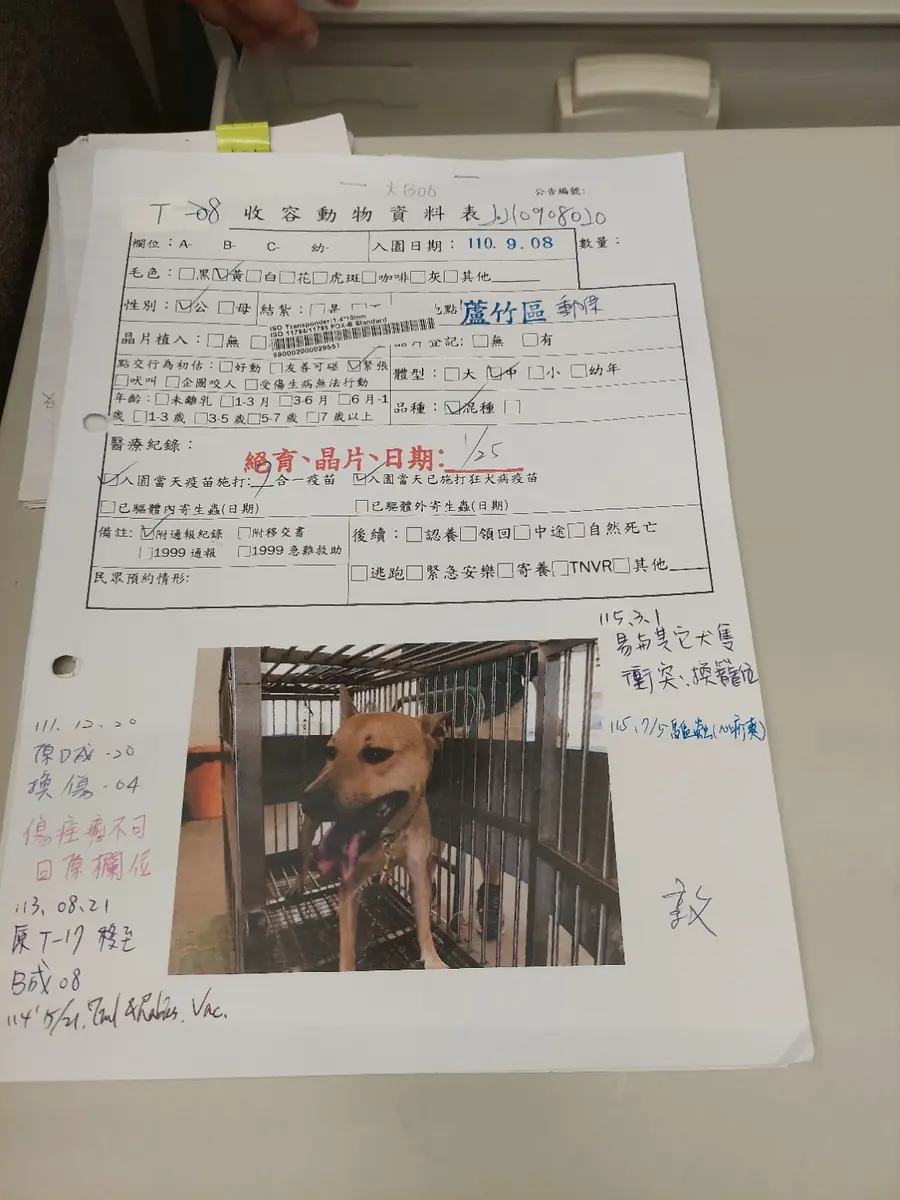 大B06
公告編號:
T-08 收容動物資料表
欄位：A- B- C- 幼- 入園日期：110.9.08 數量：
毛色：□黑☑黃□白□花□虎斑□咖啡□灰□其他
性別：☑公□母 結紮：
蘆竹區
ISO Transponder:1.4*10mm
ISO 11784/11785 FDX-B Standard
990002000029557
晶片植入：□無□ 登記：□無 □有
點交行為初估：□好動 □友善可碰 ☑緊張
□吠叫 □企圖咬人 □受傷生病無法行動
體型：□大☑中□小□幼年
年齡：□未離乳 □1-3月 □3-6月 □6月-1
歲 □1-3歲 □3-5歲□5-7歲 □7歲以上
品種：☑混種 □
醫療紀錄：
絕育、晶片、日期：1/25
☑入園當天疫苗施打: 合一疫苗 ☑入園當天已施打狂犬病疫苗
□已驅體內寄生蟲(日期) □已驅體外寄生蟲(日期)
備註: ☑附通報紀錄 □附移交書
□1999通報 □1999急難救助
後續：□認養□領回□中途□自然死亡
□逃跑□緊急安樂□寄養□TNVR□其他
民眾預約情形:
115.3.1
易與其它犬隻
衝突、換籠位
111.12.20
原D成-20
換傷-04
傷症癒不可
回原欄位
113.08.21
原T-17 移至
B成08
114' 5/21. 7ml & Rabies. Vac.